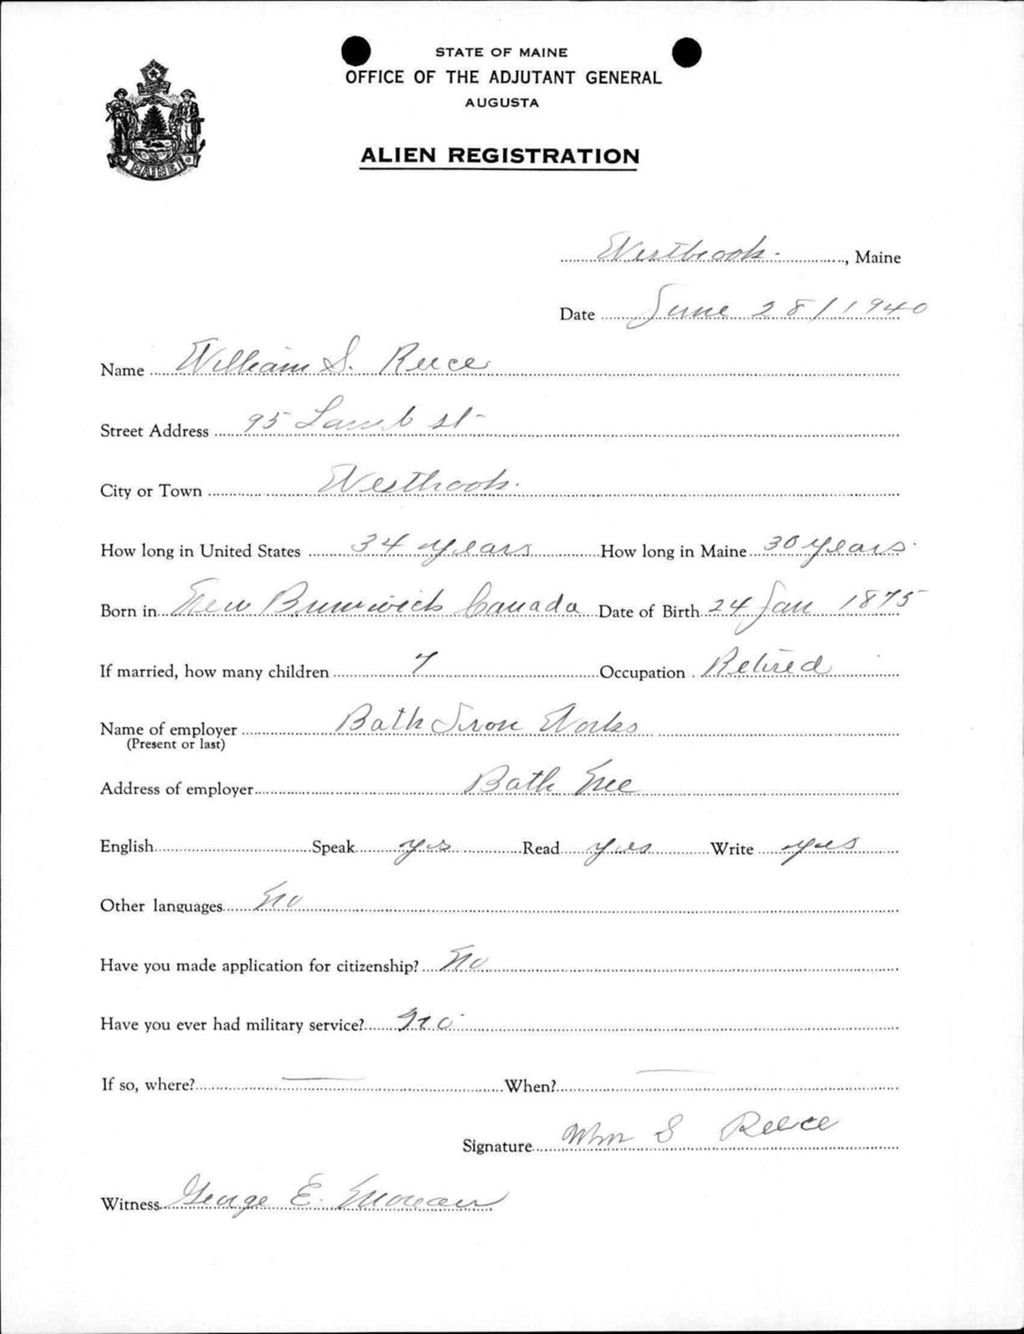 STATE OF MAINE
OFFICE OF THE ADJUTANT GENERAL
AUGUSTA
ALIEN REGISTRATION
MAINE
Westbrook, Maine
Date June 28/1940
Name William S. Reece
Street Address 95 Lamb st
City or Town Westbrook.
How long in United States 34 years How long in Maine 30 years
Born in New Brunswick Canada Date of Birth 24 Jan 1875
If married, how many children 7 Occupation Retired
Name of employer Bath Iron Works
(Present or last)
Address of employer Bath Me
English Speak yes Read yes Write yes
Other languages No
Have you made application for citizenship? No
Have you ever had military service? no
If so, where? — When? —
Signature Wm S Reece
Witness George E.